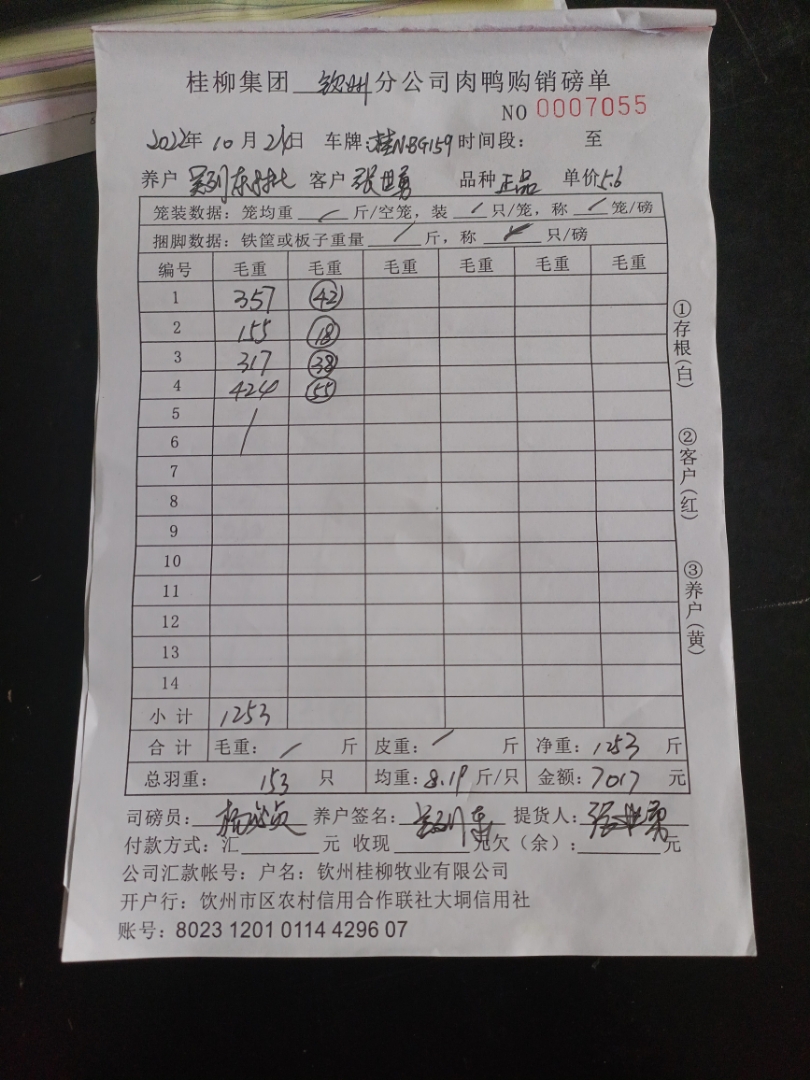 桂柳集团 钦州 分公司肉鸭购销磅单
NO 0007055
2022年 10月 21日 车牌: 桂N·BG159 时间段: 至
养户 客户 张世勇 品种 正品 单价 5.6
笼装数据: 笼均重 / 斤/空笼, 装 / 只/笼, 称 / 笼/磅
捆脚数据: 铁筐或板子重量 / 斤, 称 / 只/磅
编号 毛重 毛重 毛重 毛重 毛重 毛重
1 357 42
2 155 18
3 317 38
4 424 55
5 /
6
7
8
9
10
11
12
13
14
小计 1253
合计 毛重: / 斤 皮重: / 斤 净重: 1253 斤
总羽重: 153 只 均重: 8.19 斤/只 金额: 7017 元
司磅员: 养户签名: 提货人: 张世勇
付款方式: 汇 元 收现 元欠(余): 元
公司汇款帐号: 户名: 钦州桂柳牧业有限公司
开户行: 饮州市区农村信用合作联社大垌信用社
账号: 8023 1201 0114 4296 07
①存根(白)
②客户(红)
③养户(黄)